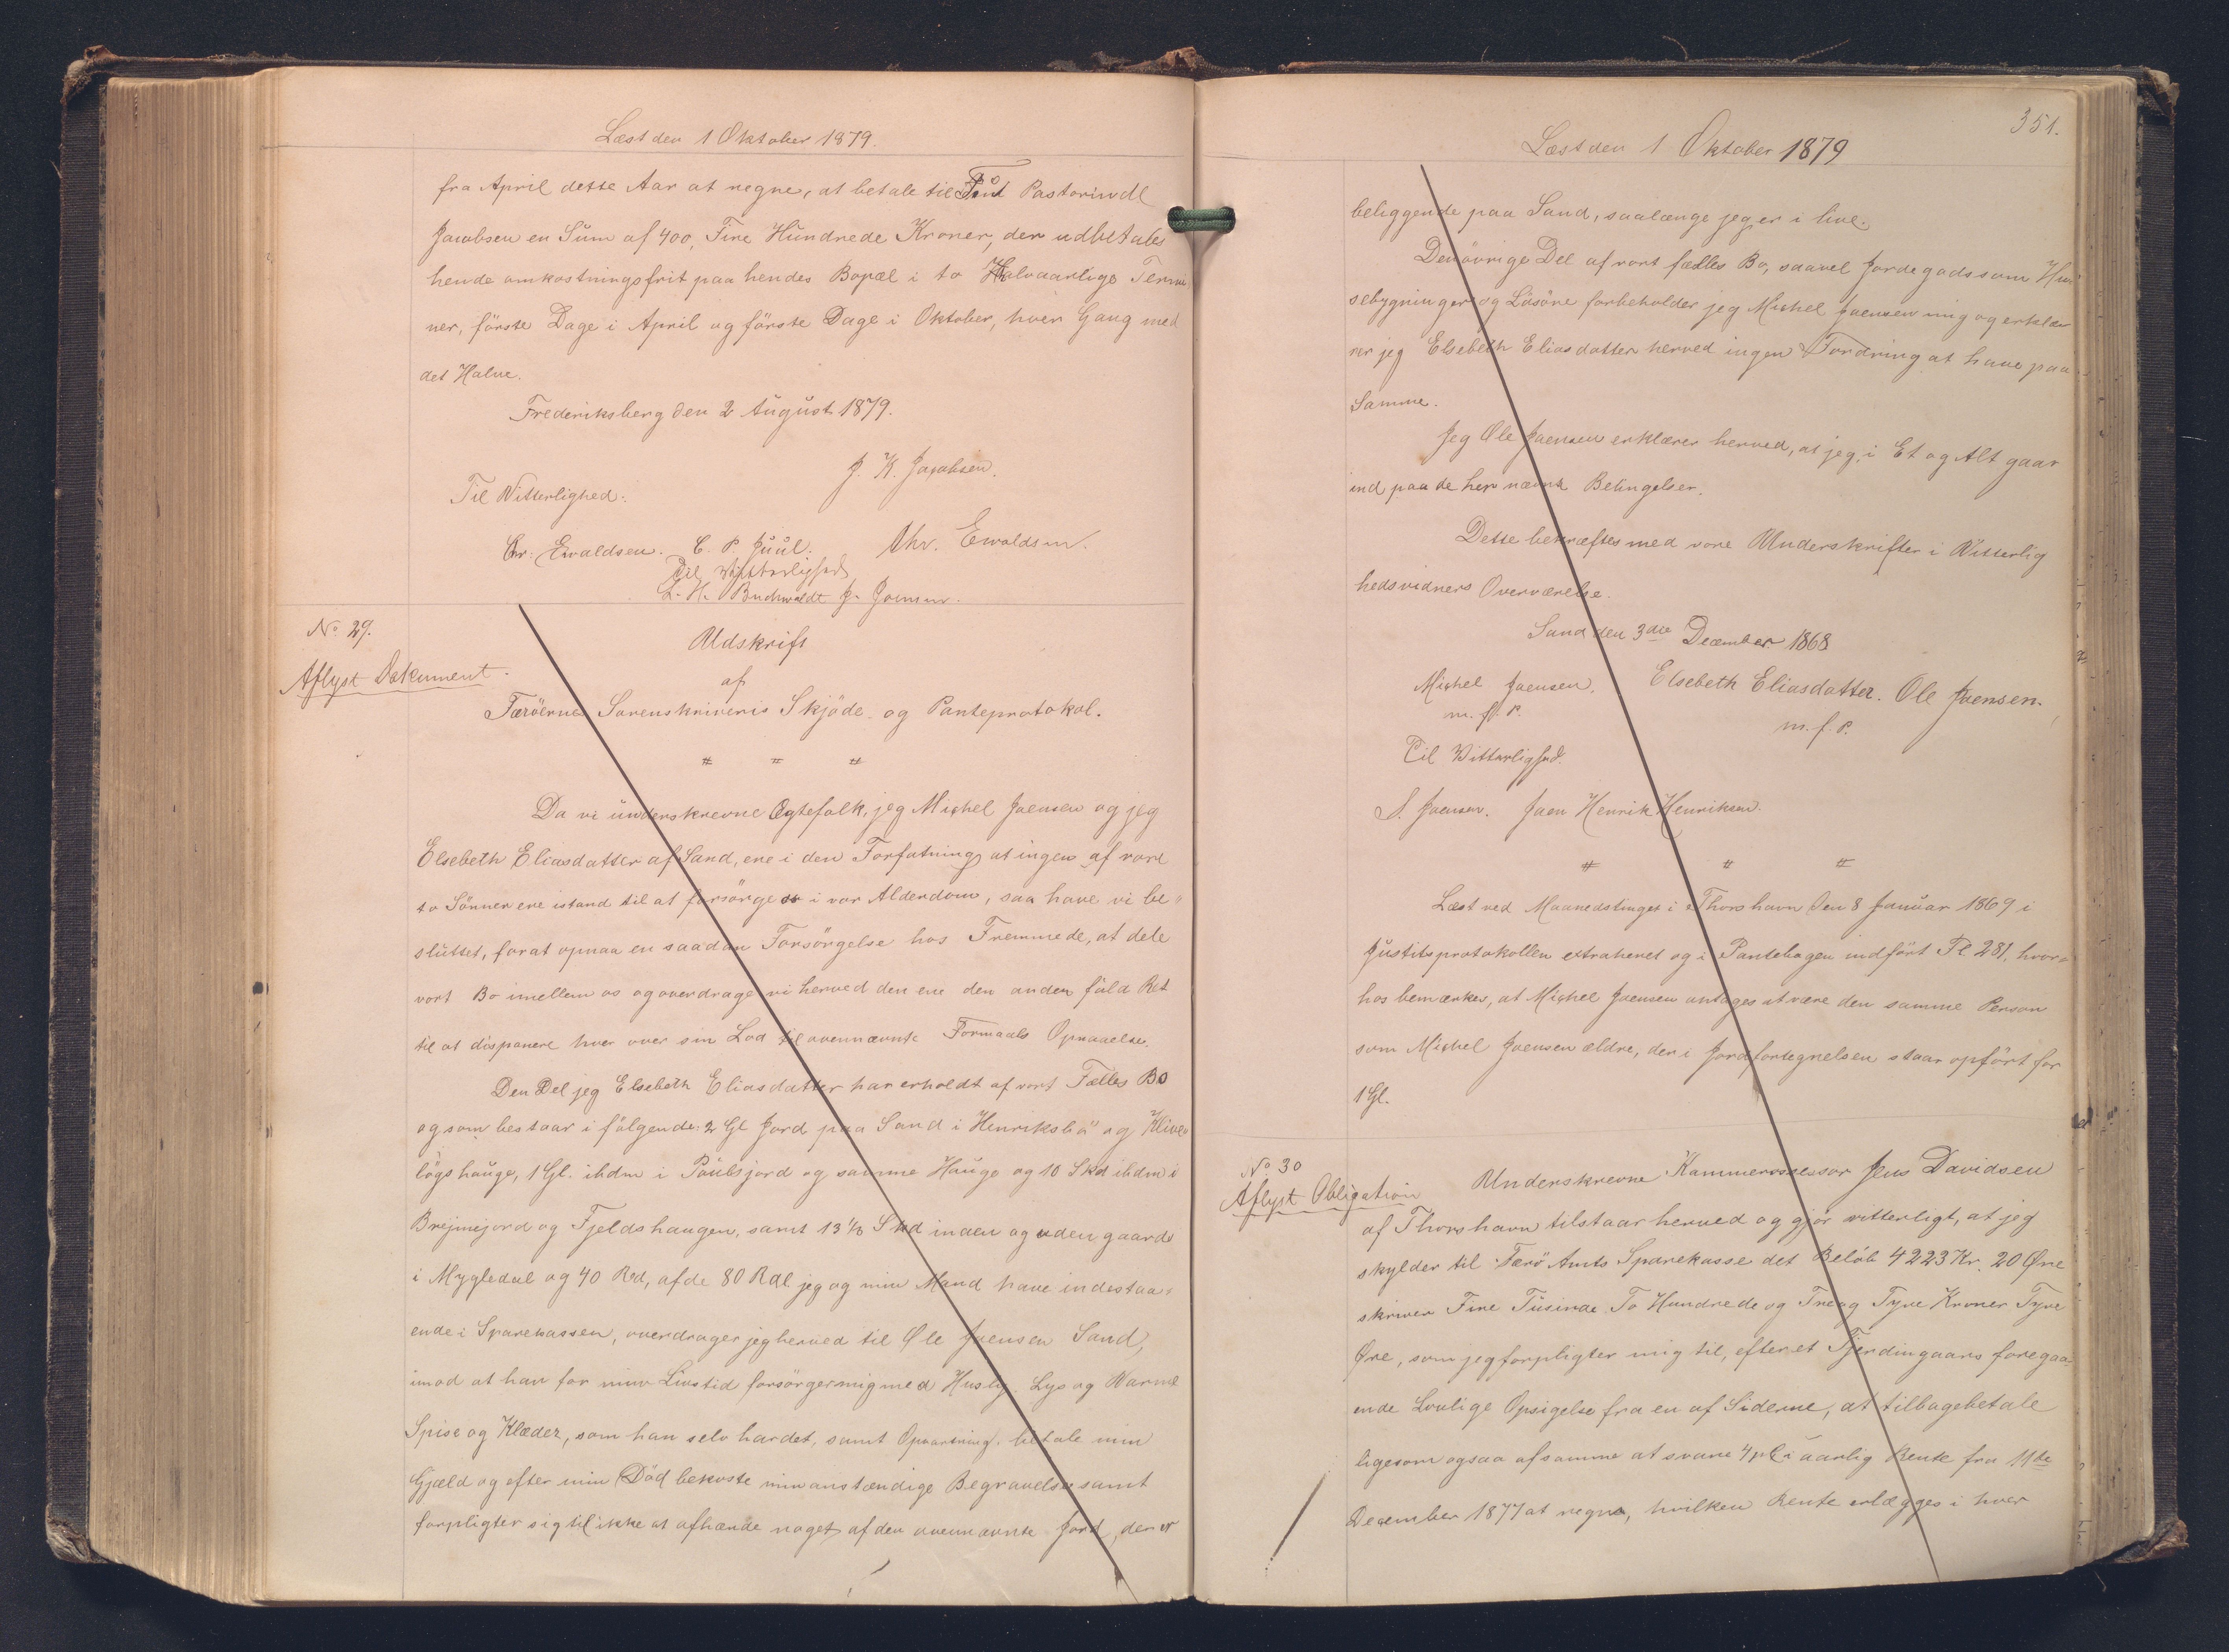 Læst den 1 Oktober 1879.
fra April dette Aar at regne, at betale til Pastorinde
Jacobsen en Sum af 400, Fire Hundrede Kroner, der udbetales
hende omkostningsfrit paa hendes Bopæl i to Halvaarlige Termi-
ner, förste Dage i April og förste Dage i Oktober, hver Gang med
det Halve.
Frederiksberg den 2 August 1879.
J. K. Jacobsen.
Til Vitterlighed:
Chr. Ewaldsen. C. P. Juul. Chr. Ewaldsen.
Til Vitterlighed
L. H. Buchwaldt J. Joensen.
No 29.
Aflyst Dokument.
Udskrift
af
Færöernes Sorenskriveris Skjöde- og Panteprotokol.
Da vi underskrevne Ægtefolk, jeg Michel Joensen og jeg
Elsebeth Eliasdatter af Sand, ere i den Forfatning at ingen af vore
to Sönner ere istand til at forsörge os i vor Alderdom, saa have vi be-
sluttet, forat opnaa en saadan Forsörgelse hos Fremmede, at dele
vort Bo imellem os og overdrage vi herved den ene den anden fuld Ret
til at disponere hver over sin Lod til ovennævnte Formaals Opnaaelse.
Den Del jeg Elsebeth Eliasdatter har erholdt af vort Fælles Bo
og som bestaar i fölgende: 2 Gl Jord paa Sand i Henriksbö og Klive
lögshauge, 1 Gl. ibdm i Poulsjord og samme Hauge og 10 Skd ibdm i
Brejmejord og Fjeldshaugen, samt 13 1/3 Skd inden og uden gaards
i Mygledal og 40 Rd, af de 80 Rdl jeg og min Mand have indestaa-
ende i Sparekassen, overdrager jeg herved til Ole Joensen Sand,
imod at han for min Livstid forsörger mig med Husly, Lys og Varme
Spise og Klæder, som han selv har det, samt Opvartning, betale min
Gjæld og efter min Död bekoste min anstændige Begravelse samt
forpligter sig til ikke at afhænde noget af den ovennævnte Jord, der er
351.
Læst den 1 Oktober 1879
beliggende paa Sand, saalænge jeg er i live.
Den övrige Del af vort fælles Bo, saavel Jordegods som Hu-
sebygninger og Lösöre forbeholder jeg Michel Joensen mig og erklæ-
rer jeg Elsebeth Eliasdatter herved ingen Fordring at have paa
Samme.
Jeg Ole Joensen erklærer herved, at jeg i Et og Alt gaar
ind paa de her nævnte Betingelser.
Dette bekræftes med vore Underskrifter i Vitterlig
hedsvidners Overværelse.
Sand den 3die December 1868
Michel Joensen. Elsebeth Eliasdatter. Ole Joensen.
m. f. P. m. f. P.
Til Vitterlighed.
S. Joensen. Joen Henrik Henriksen.
Læst ved Maanedstinget i Thorshavn den 8 Januar 1869 i
Justitsprotokollen extraheret og i Pantebogen indfört Fl 281, hvor-
hos bemærkes, at Michel Joensen antages at være den samme Person
som Michel Joensen ældre, der i Jordfortegnelsen staar opfört for
1 Gl.
No 30
Aflyst Obligation
Underskrevne Kammerassessor Jens Davidsen
af Thorshavn tilstaar herved og gjör vitterligt, at jeg
skylder til Færö Amts Sparekasse det Belöb 4223 Kr. 20 Øre
skriver Fire Tusinde To Hundrede og Tre og Tyve Kroner Tyve
Øre, som jeg forpligter mig til, efter et Fjerdingaars foregaa-
ende Lovlige Opsigelse fra en af Siderne, at tilbagebetale
ligesom ogsaa af samme at svare 4 pCt i aarlig Rente fra 11te
December 1877 at regne, hvilken Rente erlægges i hver